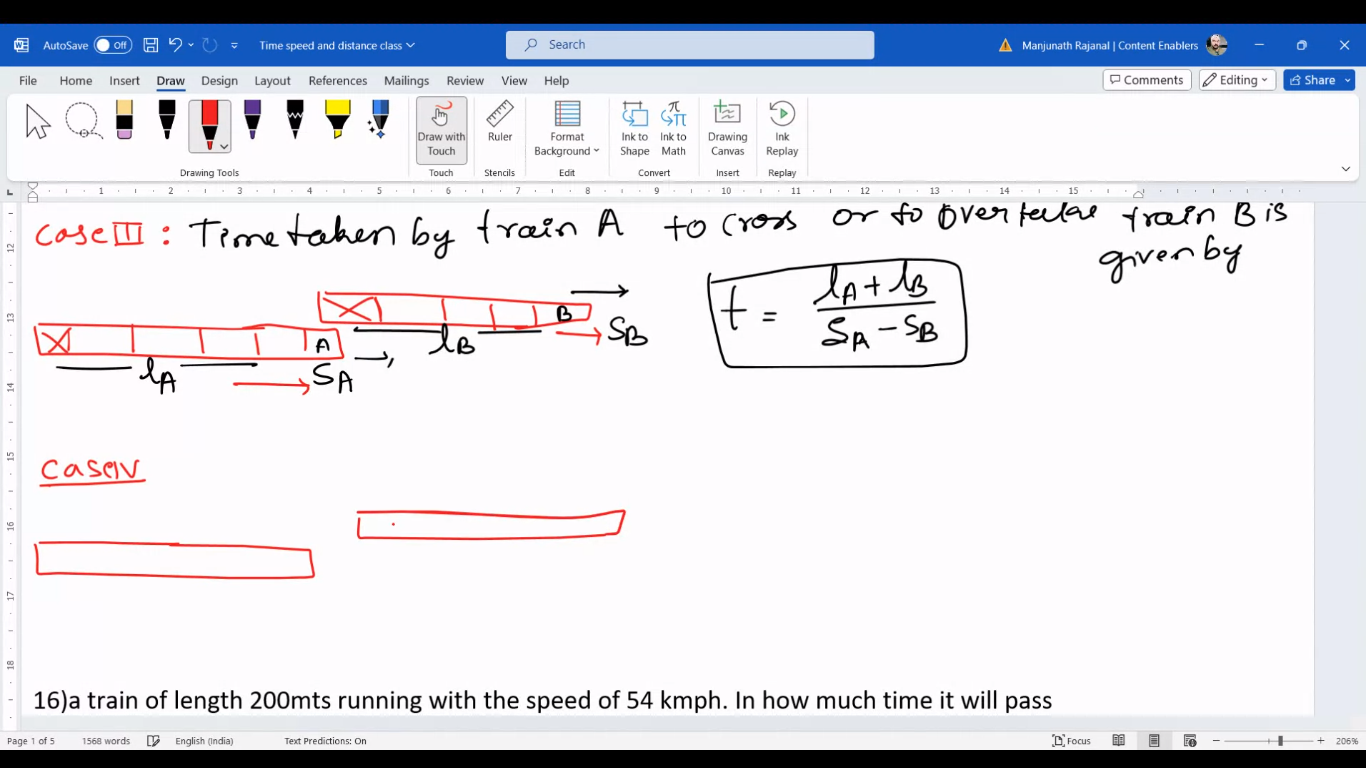 AutoSave Off Time speed and distance class Search Manjunath Rajanal | Content Enablers
File Home Insert Draw Design Layout References Mailings Review View Help Comments Editing Share
Draw with Touch Ruler Format Background Ink to Shape Ink to Math Drawing Canvas Ink Replay
Drawing Tools Touch Stencils Edit Convert Insert Replay
1 2 3 4 5 6 7 8 9 10 11 12 13 14 15
12 13 14 15 16 17 18
Case III : Time taken by train A to Cross or to Overtake train B is
given by
B
A
lB SB
lA SA
t = lA + lB / SA - SB
Case IV
16)a train of length 200mts running with the speed of 54 kmph. In how much time it will pass
Page 1 of 5 1568 words English (India) Text Predictions: On Focus 206%